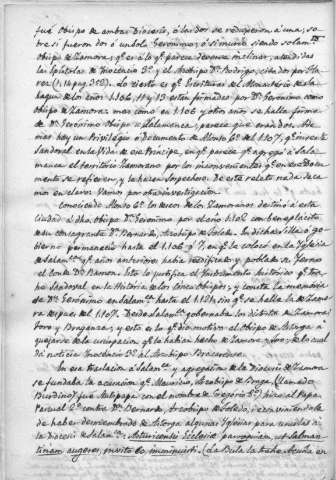 fué obispo de ambas Diocesis, ó las dos se redugeron á una, so-
bre si fueron dos ó un solo Geronimo, ó si murió siendo solamte
Obispo de Zamora, qe es á lo qe parece devemos inclinar, atendidas
las Epistolas de Inocencio 3º y el Arzobispo Dn Rodrigo, citados por Flo-
rez (t. 14 pag. 362). Lo cierto es qe Escrituras del Monasterio de Saha-
hagun de los años 1106, 11 y 13 estan firmadas por Dn Geronimo como
obispo de Zamora: mas como en 1106 y otros años hay firmas
de Dn Geronimo Obispo de Salamanca, parece que
mas hay un Privilegio ó documento de Alonso 6º del 1107, qe inserta
Sandoval en la Vida de ese Principe, en qe parece qe agregó á Sala-
manca el territorio Zamorano por los inconvenientes qe en ese Docu-
mento se refieren, y le hacen sospechoso. De este relato nada saca-
mos en claro. Vamos por otra investigacion.
Conociendo Alonso 6º los deseos de los Zamoranos destinó á esta
ciudad á dho. Obispo Dn Geronimo por el año 1102 con beneplacito
de su consagrante Dn Bernardo, Arzobispo de Toledo. En dicha Silla ó go-
bierno permaneció hasta el 1106 ó 7, en qe le colocó en la Iglesia
de Salamca qe años anteriores habia redificado y poblado su Yerno
el Conde Dn Ramon. Esto lo justifica el Instrumento historico qe tra-
ho Sandoval en la Historia de los cinco Obispos, y consta la memoria
de Dn Geronimo en Salamca hasta el 1120 sin qe se halla la de Zamo-
ra despues del 1107. Desde Salamca gobernaba los distritos de Zamora,
Toro y Braganza, y esto es lo qe dio motivo al Obispo de Astorga á
quejarse de la usurpacion qe le habian hecho de Zamora y Toro, de lo cual
dá noticia Inocencio 3º al Arzobispo Bracarense.
En esa traslacion á Salamca y agregacion de la Diocesis de Zamora
se fundaba la acusacion qe Mauricio, Arzobispo de Braga (llamado
Burdino) fué Antipapa con el nombre de Gregorio 8º) hizo al Papa
Pascual 2º contra Dn Bernardo, Arzobispo de Toledo,
de haber desmembrado de Astorga algunas Iglesias para unirlas á
la diocesi de Salamca: Asturicensis Ecclesiæ parroquiam, ut Salman-
tinam augeres, invito eo minuisti. (La Bula la trahe Acuña en